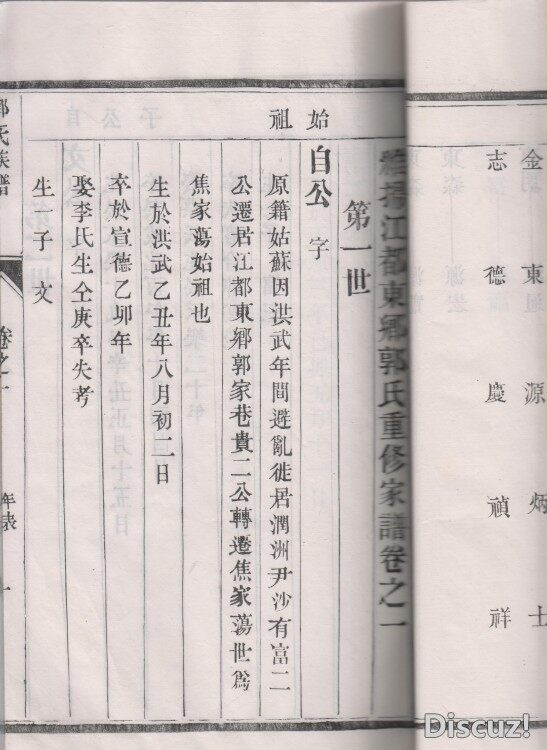 金 東 源 炳 士
志 德 慶 禎 祥
維揚江都東鄉郭氏重修家譜卷之一
第一世
始祖
自公 字
原籍姑蘇因洪武年間避亂徙居潤洲尹沙有富二
公遷居江都東鄉郭家巷貴二公轉遷焦家蕩世爲
焦家蕩始祖也
生於洪武乙丑年八月初二日
卒於宣德乙卯年
娶李氏生仝庚卒失考
生子文
郭氏族譜
卷之一
年表
一
Discuz!